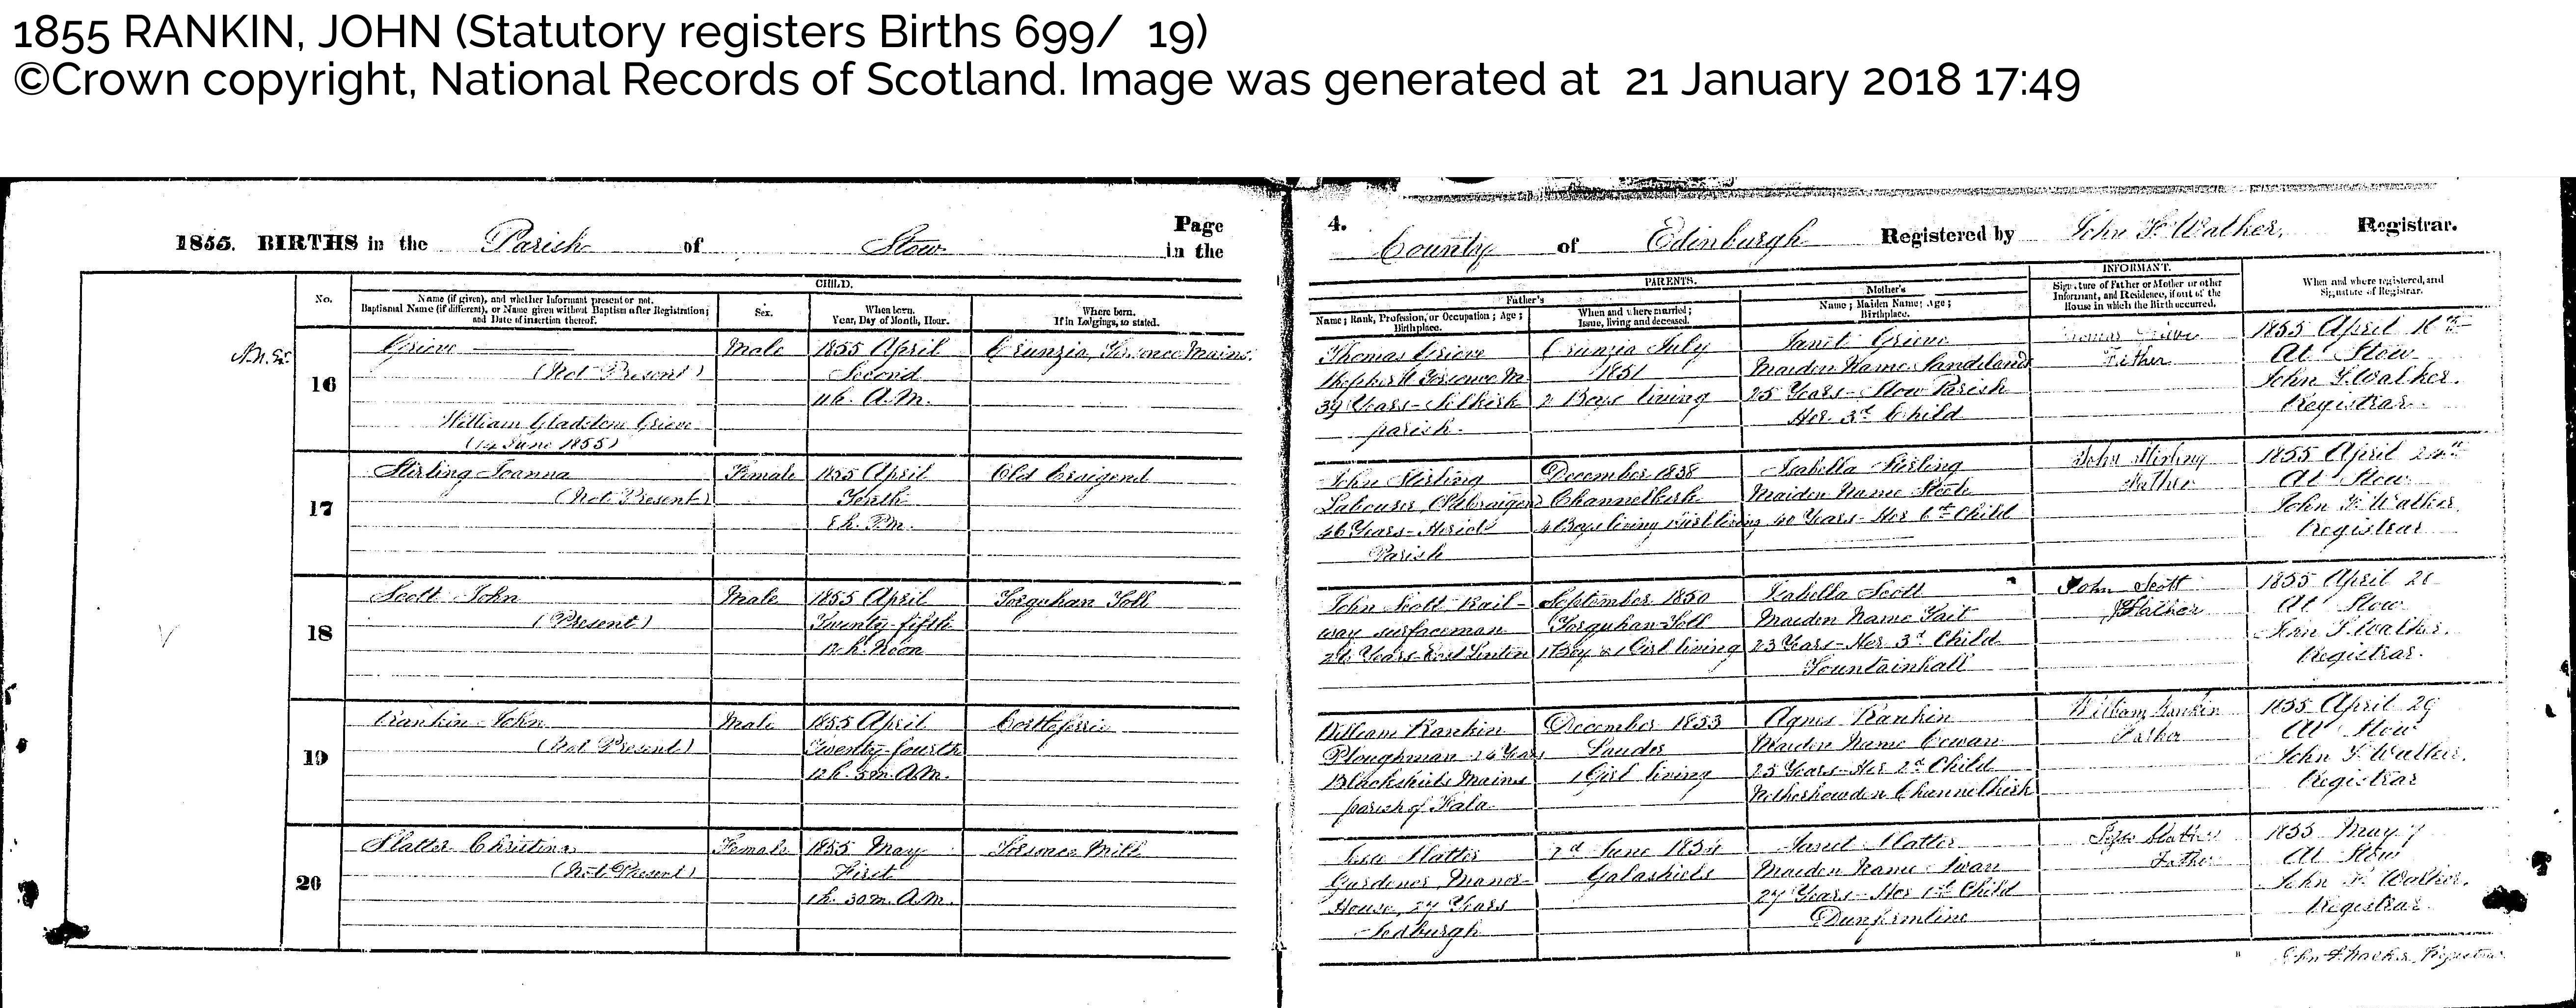 1855 RANKIN, JOHN (Statutory registers Births 699/ 19)
©Crown copyright, National Records of Scotland. Image was generated at 21 January 2018 17:49
1855. BIRTHS in the Parish of Stow Page in the
4. County of Edinburgh Registered by John Walker, Registrar.
No.
CHILD.
Name (if given), and whether Informant present or not.
Baptismal Name (if different), or Name given without Baptism after Registration;
and Date of insertion thereof.
Sex.
When born.
Year, Day of Month, Hour.
Where born.
If in Lodgings, so stated.
PARENTS.
Father's
Name; Rank, Profession, or Occupation; Age;
Birthplace.
When and where married;
Issue, living and deceased.
Mother's
Name; Maiden Name; Age;
Birthplace.
INFORMANT.
Signature of Father or Mother or other
Informant, and Residence, if out of the
House in which the Birth occurred.
When and where registered, and
Signature of Registrar.
16
Grieve
(Not Present)
William Gladstone Grieve
(14 June 1855)
Male
1855 April
Second
4h. A.M.
Mains.
Thomas Grieve
39 Years - Selkirk
parish.
July
1851
2 Boys living
Janet Grieve
Maiden Name Sandilands
25 Years - Stow Parish
Her 3d Child
Thomas Grieve
Father
1855 April 16th
At Stow
John Walker.
Registrar.
17
Stirling Joanna
(Not Present)
Female
1855 April
Tenth
8h. P.M.
Old Craigend
John Stirling
Labourer, Old Craigend
46 Years - Heriot
Parish
December 1838
Channelkirk
4 Boys living 1 Girl living
Isabella Stirling
Maiden Name Steele
40 Years - Her 6th Child
John Stirling
Father
1855 April
At Stow
John Walker
Registrar
18
Scott John
(Present)
Male
1855 April
Twenty-fifth
12 h. Noon
Torquhan Toll
John Scott Rail-
way surfaceman
26 Years East Linton
September 1850
Torquhan-Toll
1 Boy & 1 Girl living
Isabella Scott
Maiden Name Tait
23 Years - Her 3d Child
Fountainhall
John Scott
Father
1855 April
At Stow
John Walker.
Registrar.
19
Rankin John
(Not Present)
Male
1855 April
Twenty-fourth
12h. 5m. A.M.
Cortleferrie
William Rankin
Ploughman Years
Blackshiels Mains
parish of Fala
December 1853
Lauder
1 Girl living
Agnes Rankin
Maiden Name Cowan
25 Years - Her 2d Child
Netherhowden Channelkirk
William Rankin
Father
1855 April 29
At Stow
John Walker.
Registrar
20
Slatter Christina
(Not Present)
Female
1855 May
First
1h. 30m. A.M.
Torsonce Mill
Slatter
Gardener, Manor-
House, 27 Years
2d June 1854
Galashiels
Janet Slatter
Maiden Name Swan
27 Years - Her 1st Child
Dunfermline
Slatter
Father
1855 May 7
At Stow
John Walker.
Registrar
Registrar